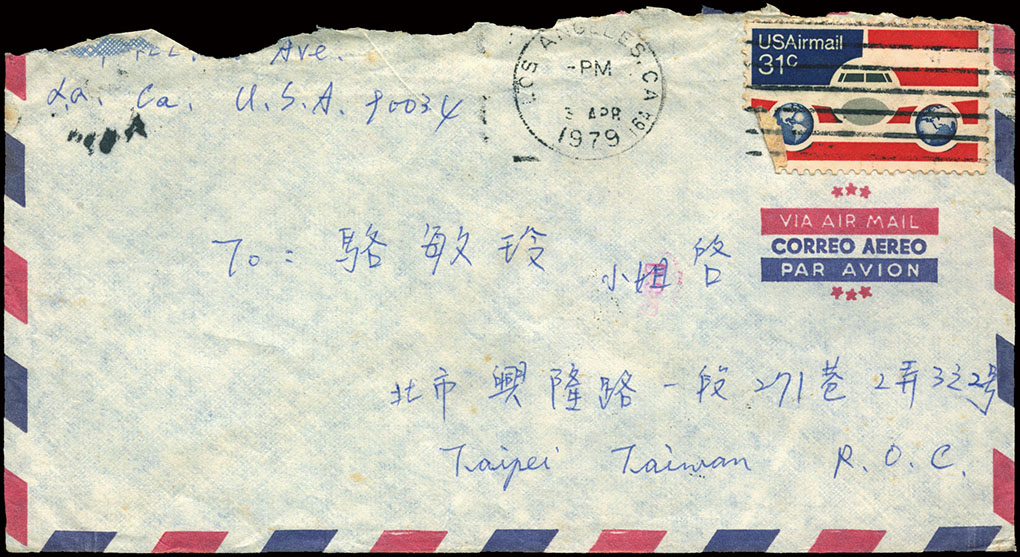 Ave.
La. Ca. U.S.A. 90034
LOS ANGELES, CA
PM
3 APR
1979
USAirmail
31c
VIA AIR MAIL
CORREO AEREO
PAR AVION
To: 駱敏玲 小姐 啓
北市興隆路一段271巷2弄3之2号
Taipei Taiwan R.O.C.